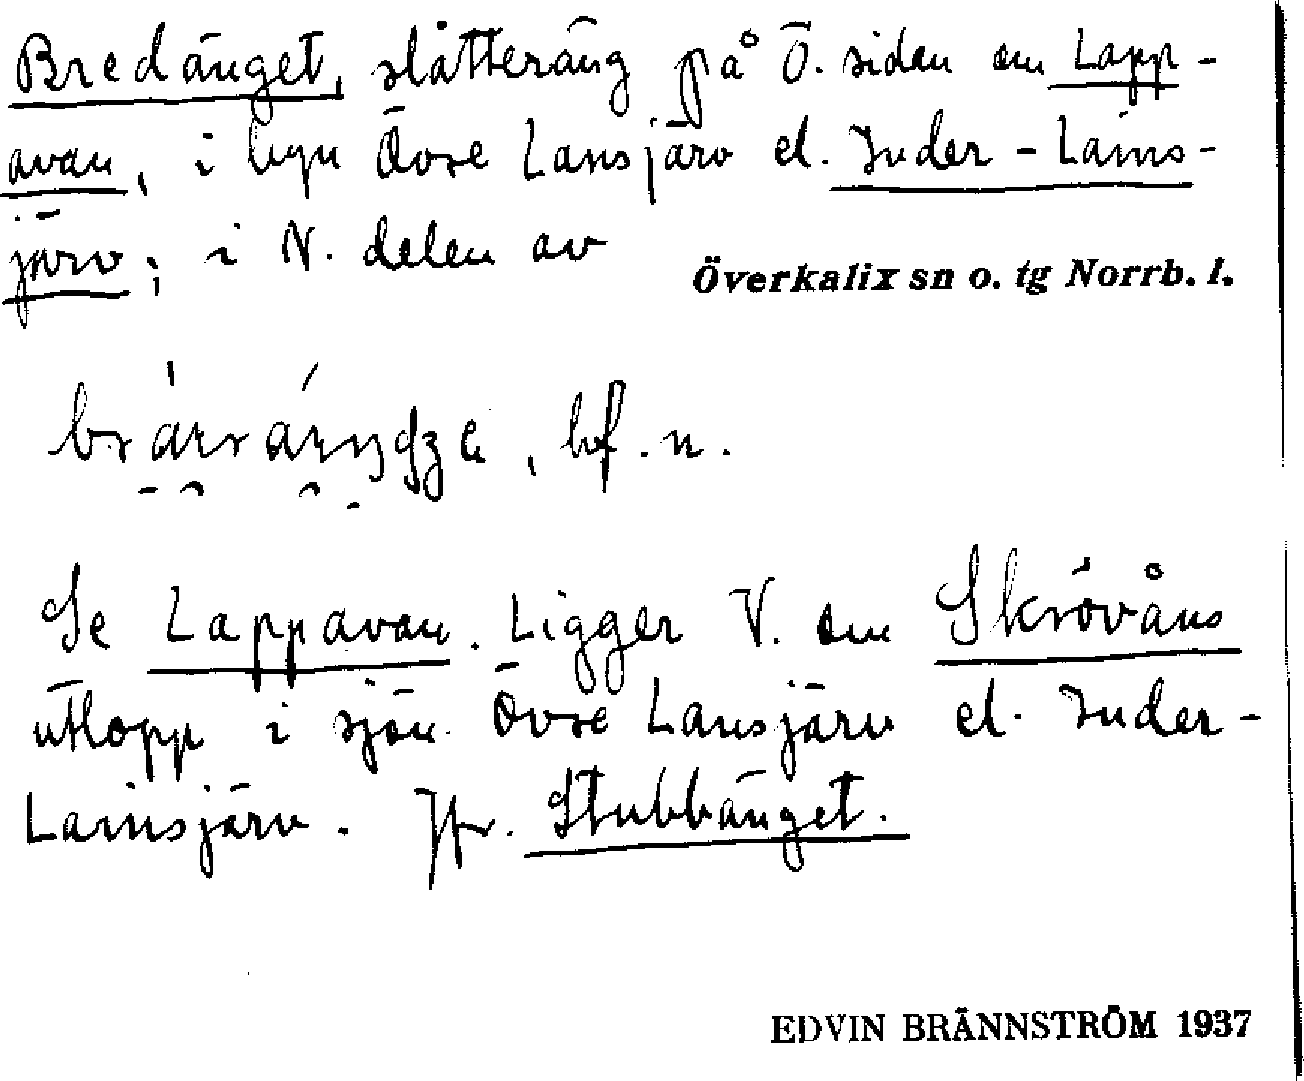 Bredänget, slåtteräng på Ö. sidan om Lapp-
avan, i byn Övre Lansjärv el. Inder-Lains-
järv; i N. delen av Överkalix sn o. tg Norrb. l.
, bf. n.
Se Lappavan. Ligger V. om Skrövåns
utlopp i sjön Övre Lansjärv el. Inder-
Lainsjärv. Jfr. Stubbänget.
EDVIN BRÄNNSTRÖM 1937